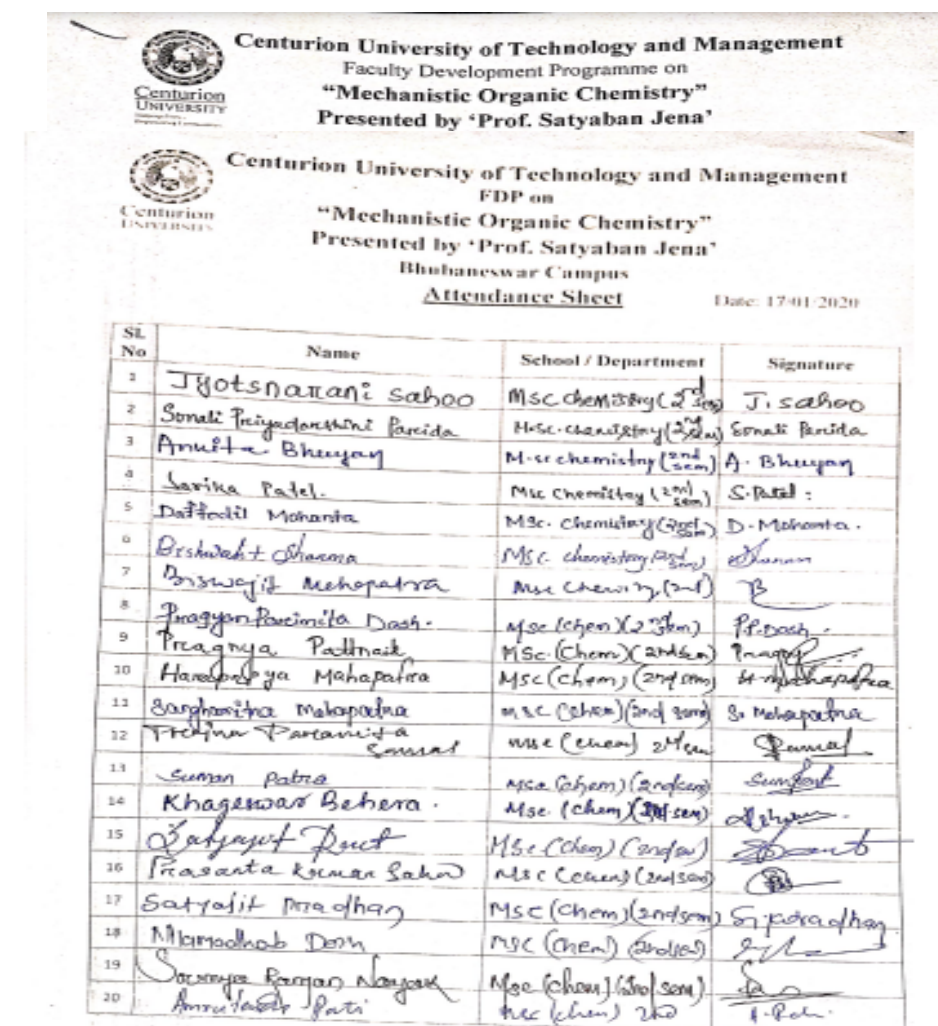 Centurion University of Technology and Management
Faculty Development Programme on
"Mechanistic Organic Chemistry"
Presented by 'Prof. Satyaban Jena'
Centurion
UNIVERSITY
Centurion University of Technology and Management
FDP on
"Mechanistic Organic Chemistry"
Presented by 'Prof. Satyaban Jena'
Bhubaneswar Campus
Attendance Sheet Date: 17-01-2020
Centurion
UNIVERSITY
SL No Name School / Department Signature
1 Jyotsnarani Sahoo Msc chemistry (2nd sem) J. sahoo
2 Sonali Priyadarshini Parida M.Sc. chemistry (2nd sem) Sonali Parida
3 Anwita Bhuyan M.sc chemistry (2nd sem) A. Bhuyan
4 Sarika Patel. Msc Chemistry (2nd sem) S. Patel
5 Daffodil Mohanta MSc. Chemistry (2nd sem) D. Mohanta.
6 Sharma MSc chemistry (2nd sem)
7 Biswajit Mohapatra Msc (2nd) B
8 Pragyan Parimita Dash. Msc (chem) (2nd sem) P.P. Dash.
9 Pragnya Pattnaik MSc. (Chem) (2nd sem)
10 Mahapatra MSc (Chem) (2nd sem)
11 Sanghamitra Mohapatra MSC (chem) (2nd sem) S. Mohapatra
12 Msc (chem) 2nd sem
13 Suman Patra MSc (chem) (2nd sem)
14 Khageswar Behera. Msc. (Chem) (2nd sem)
15 MSc (Chem) (2nd sem)
16 Prasanta Kumar Sahoo MSc (chem) (2nd sem)
17 Satyajit Pradhan MSC (Chem) (2nd sem) S. pradhan
18 MSC (Chem) (2nd sem)
19 Soumya Ranjan Nayak Msc (chem) (2nd sem)
20 Pati Msc (chem) 2nd